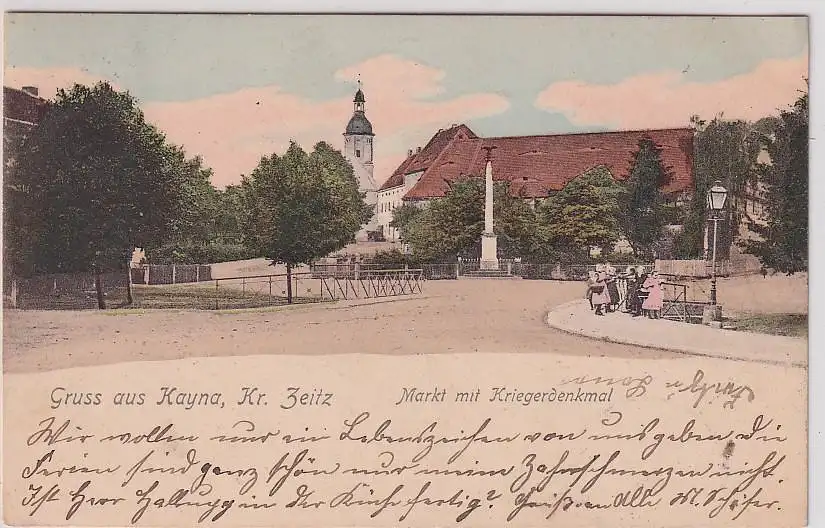 Gruss aus Kayna, Kr. Zeitz
Markt mit Kriegerdenkmal
Wir wollen nur ein Lebenszeichen von uns geben die
Ferien sind ganz schön nur meine Zahnschmerzen nicht.
Ist Herr in der Küche fertig? Alle M. Schäfer.